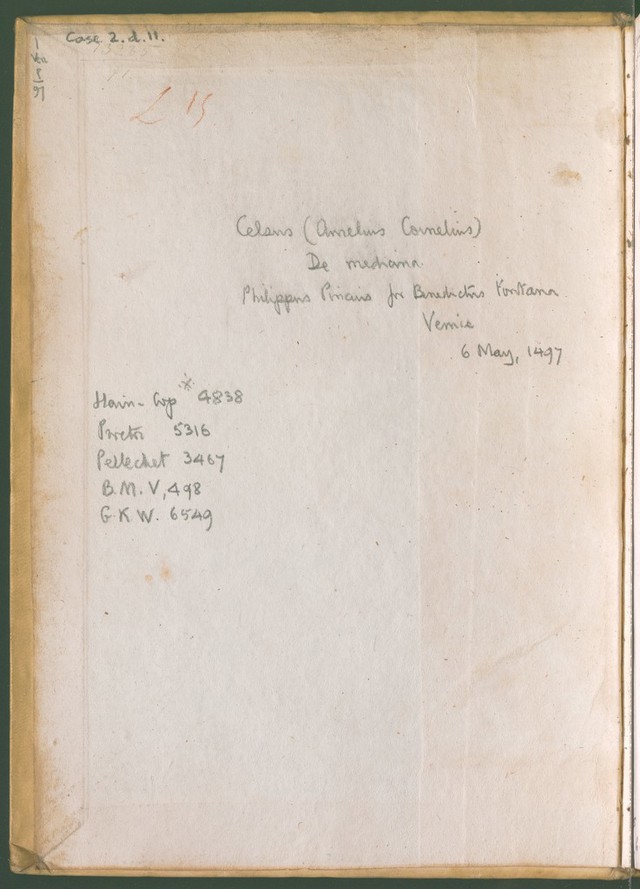 Case 2.d.11.
£ 15
Celsus (Aurelius Cornelius)
De medicina.
Philippus Pincius for Benedictus Fontana
Venice
6 May, 1497
Hain-Cop * 4838
Proctor 5316
Pellechet 3467
B.M. V, 498
G.K.W. 6549